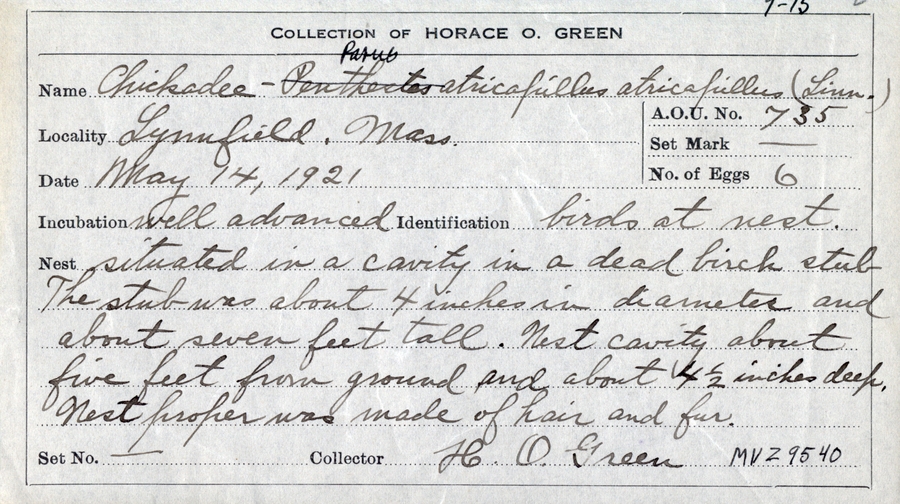 7-15
COLLECTION OF HORACE O. GREEN
Parus
Name Chickadee - Penthestes atricapillus atricapillus (Linn.)
Locality Lynnfield. Mass.
A.O.U. No. 735
Set Mark —
Date May 14, 1921
No. of Eggs 6
Incubation well advanced Identification birds at nest.
Nest situated in a cavity in a dead birch stub
The stub was about 4 inches in diameter and
about seven feet tall. Nest cavity about
five feet from ground and about 4½ inches deep.
Nest proper was made of hair and fur.
Set No. — Collector H. O. Green MVZ 9540